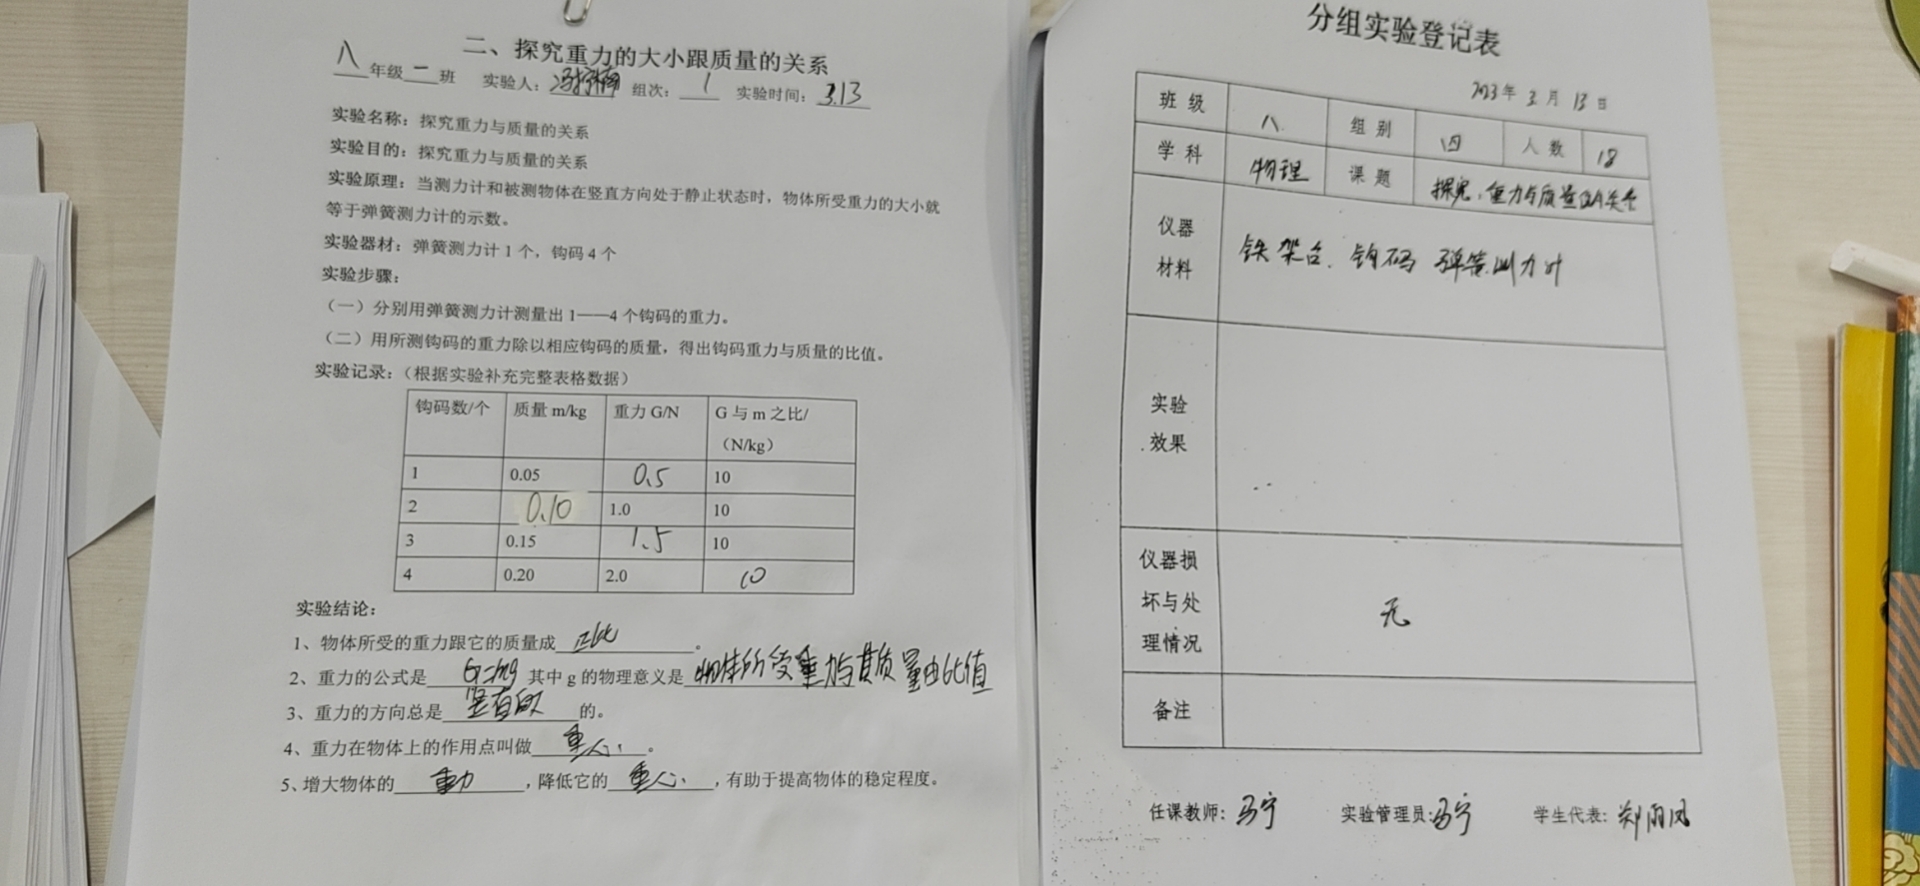 二、探究重力的大小跟质量的关系
八年级一班 实验人： 组次：1 实验时间：3.13
实验名称：探究重力与质量的关系
实验目的：探究重力与质量的关系
实验原理：当测力计和被测物体在竖直方向处于静止状态时，物体所受重力的大小就
等于弹簧测力计的示数。
实验器材：弹簧测力计1个，钩码4个
实验步骤：
（一）分别用弹簧测力计测量出1——4个钩码的重力。
（二）用所测钩码的重力除以相应钩码的质量，得出钩码重力与质量的比值。
实验记录：（根据实验补充完整表格数据）
钩码数/个 质量m/kg 重力G/N G与m之比/
（N/kg）
1 0.05 0.5 10
2 0.10 1.0 10
3 0.15 1.5 10
4 0.20 2.0 10
实验结论：
1、物体所受的重力跟它的质量成 正比 。
2、重力的公式是 G=mg 其中g的物理意义是 物体所受重力与其质量的比值
3、重力的方向总是 竖直向下 的。
4、重力在物体上的作用点叫做 重心 。
5、增大物体的 重力 ，降低它的 重心 ，有助于提高物体的稳定程度。
分组实验登记表
2023年3月13日
班级 八 组别 四 人数 18
学科 物理 课题 探究重力与质量的关系
仪器
材料
铁架台、钩码 弹簧测力计
实验
效果
仪器损
坏与处
理情况
无
备注
任课教师：马宁 实验管理员：马宁 学生代表：郑雨凤